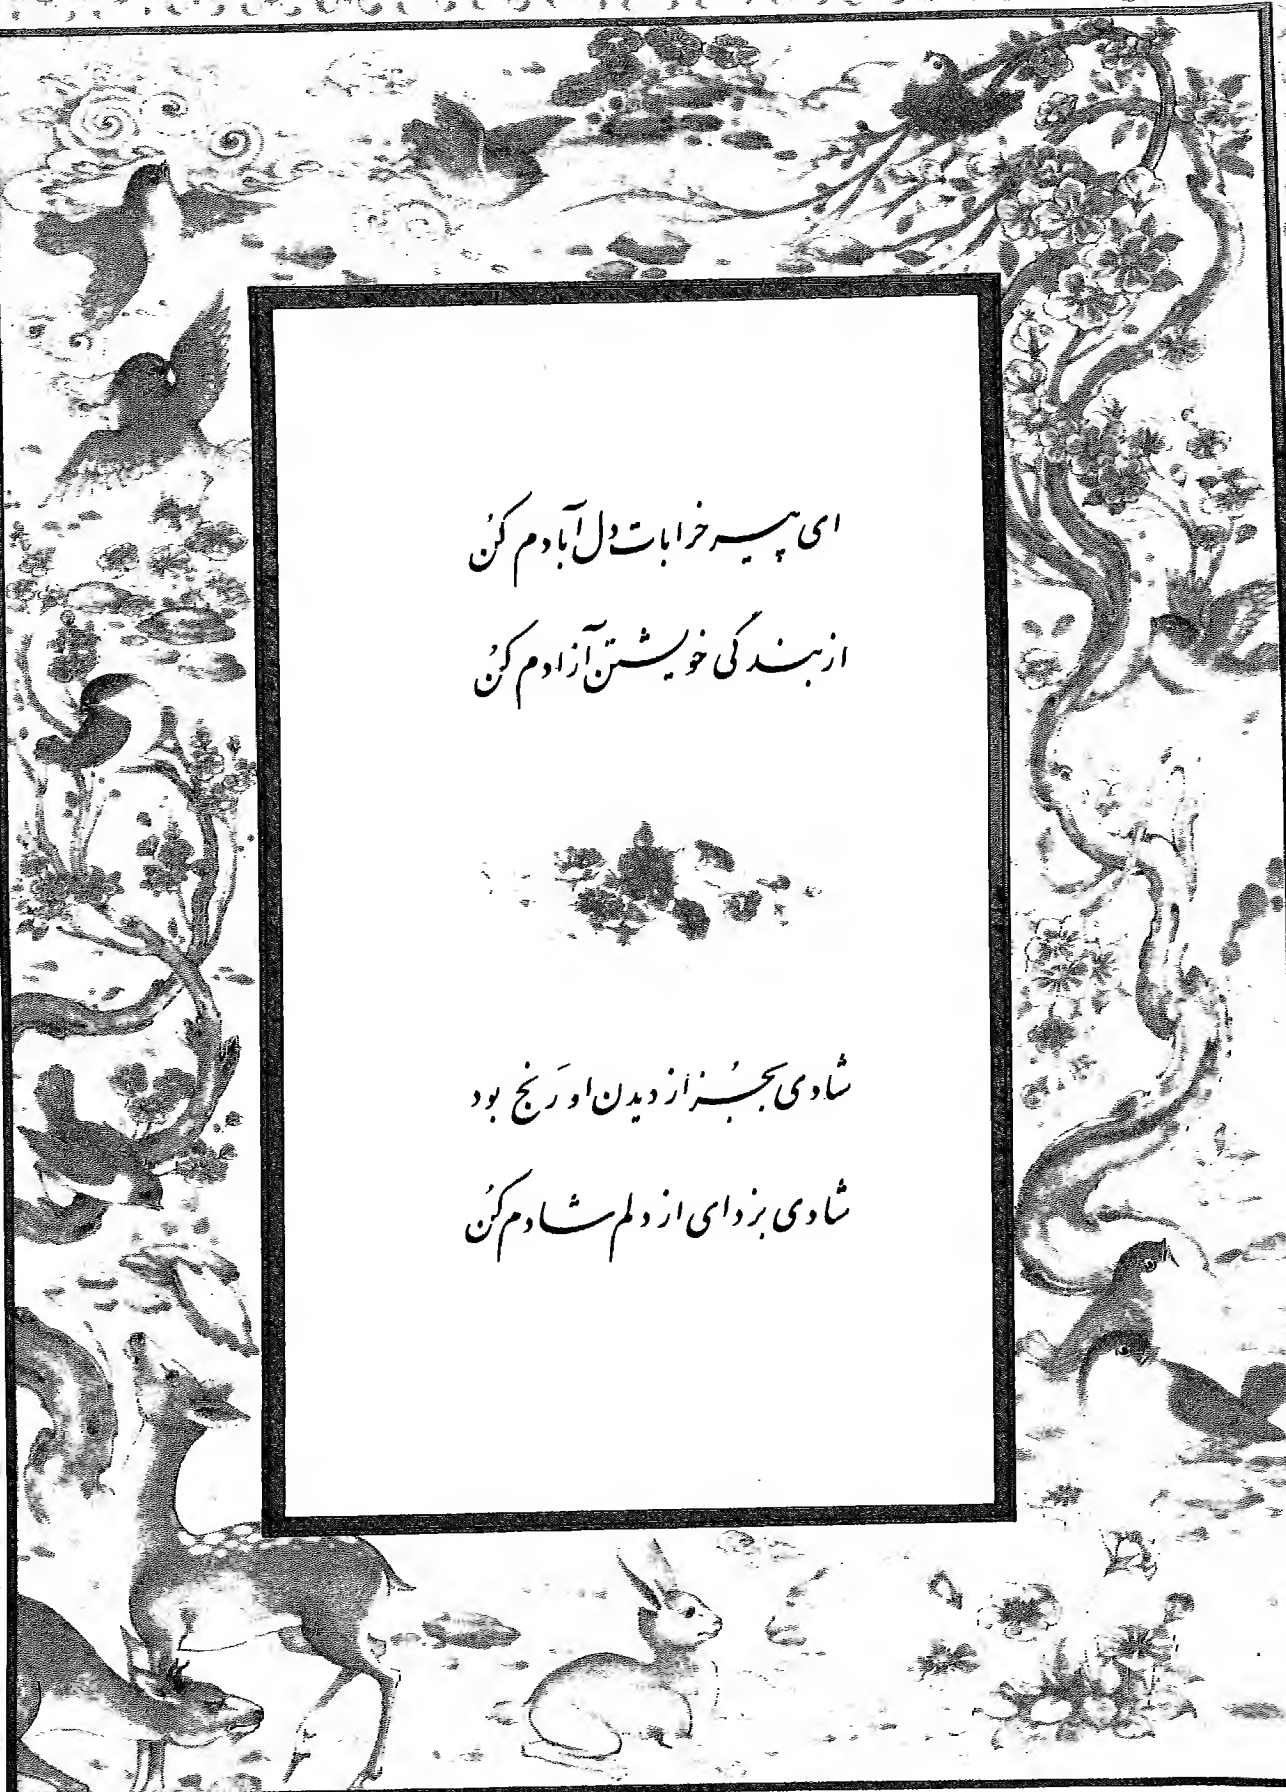 ای پیر خرابات دل آبادم کُن
از بندگی خویشتن آزادم کُن
شادی بجُز از دیدن او رَنج بود
شادی بزدای از دلم شادم کُن